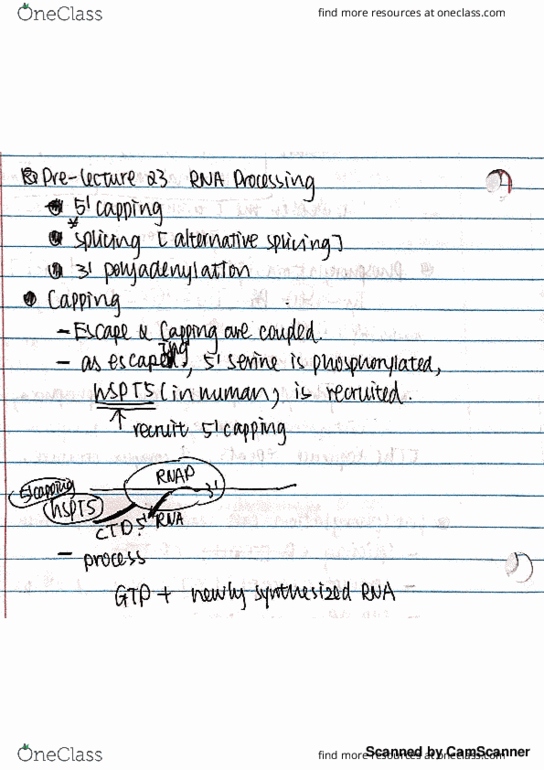 OneClass find more resources at oneclass.com
Pre-lecture 23 RNA Processing
5' capping
* splicing [alternative splicing]
3' polyadenylation
Capping
- Escape & Capping are coupled.
- as escaping, 5' serine is phosphorylated,
hSPT5 (in human) is recruited.
↑ recruit 5' capping
RNAP
3'
5' capping
hSPT5
CTD 5' RNA
- process
GTP + newly synthesized RNA
Scanned by CamScanner
OneClass find more resources at oneclass.com